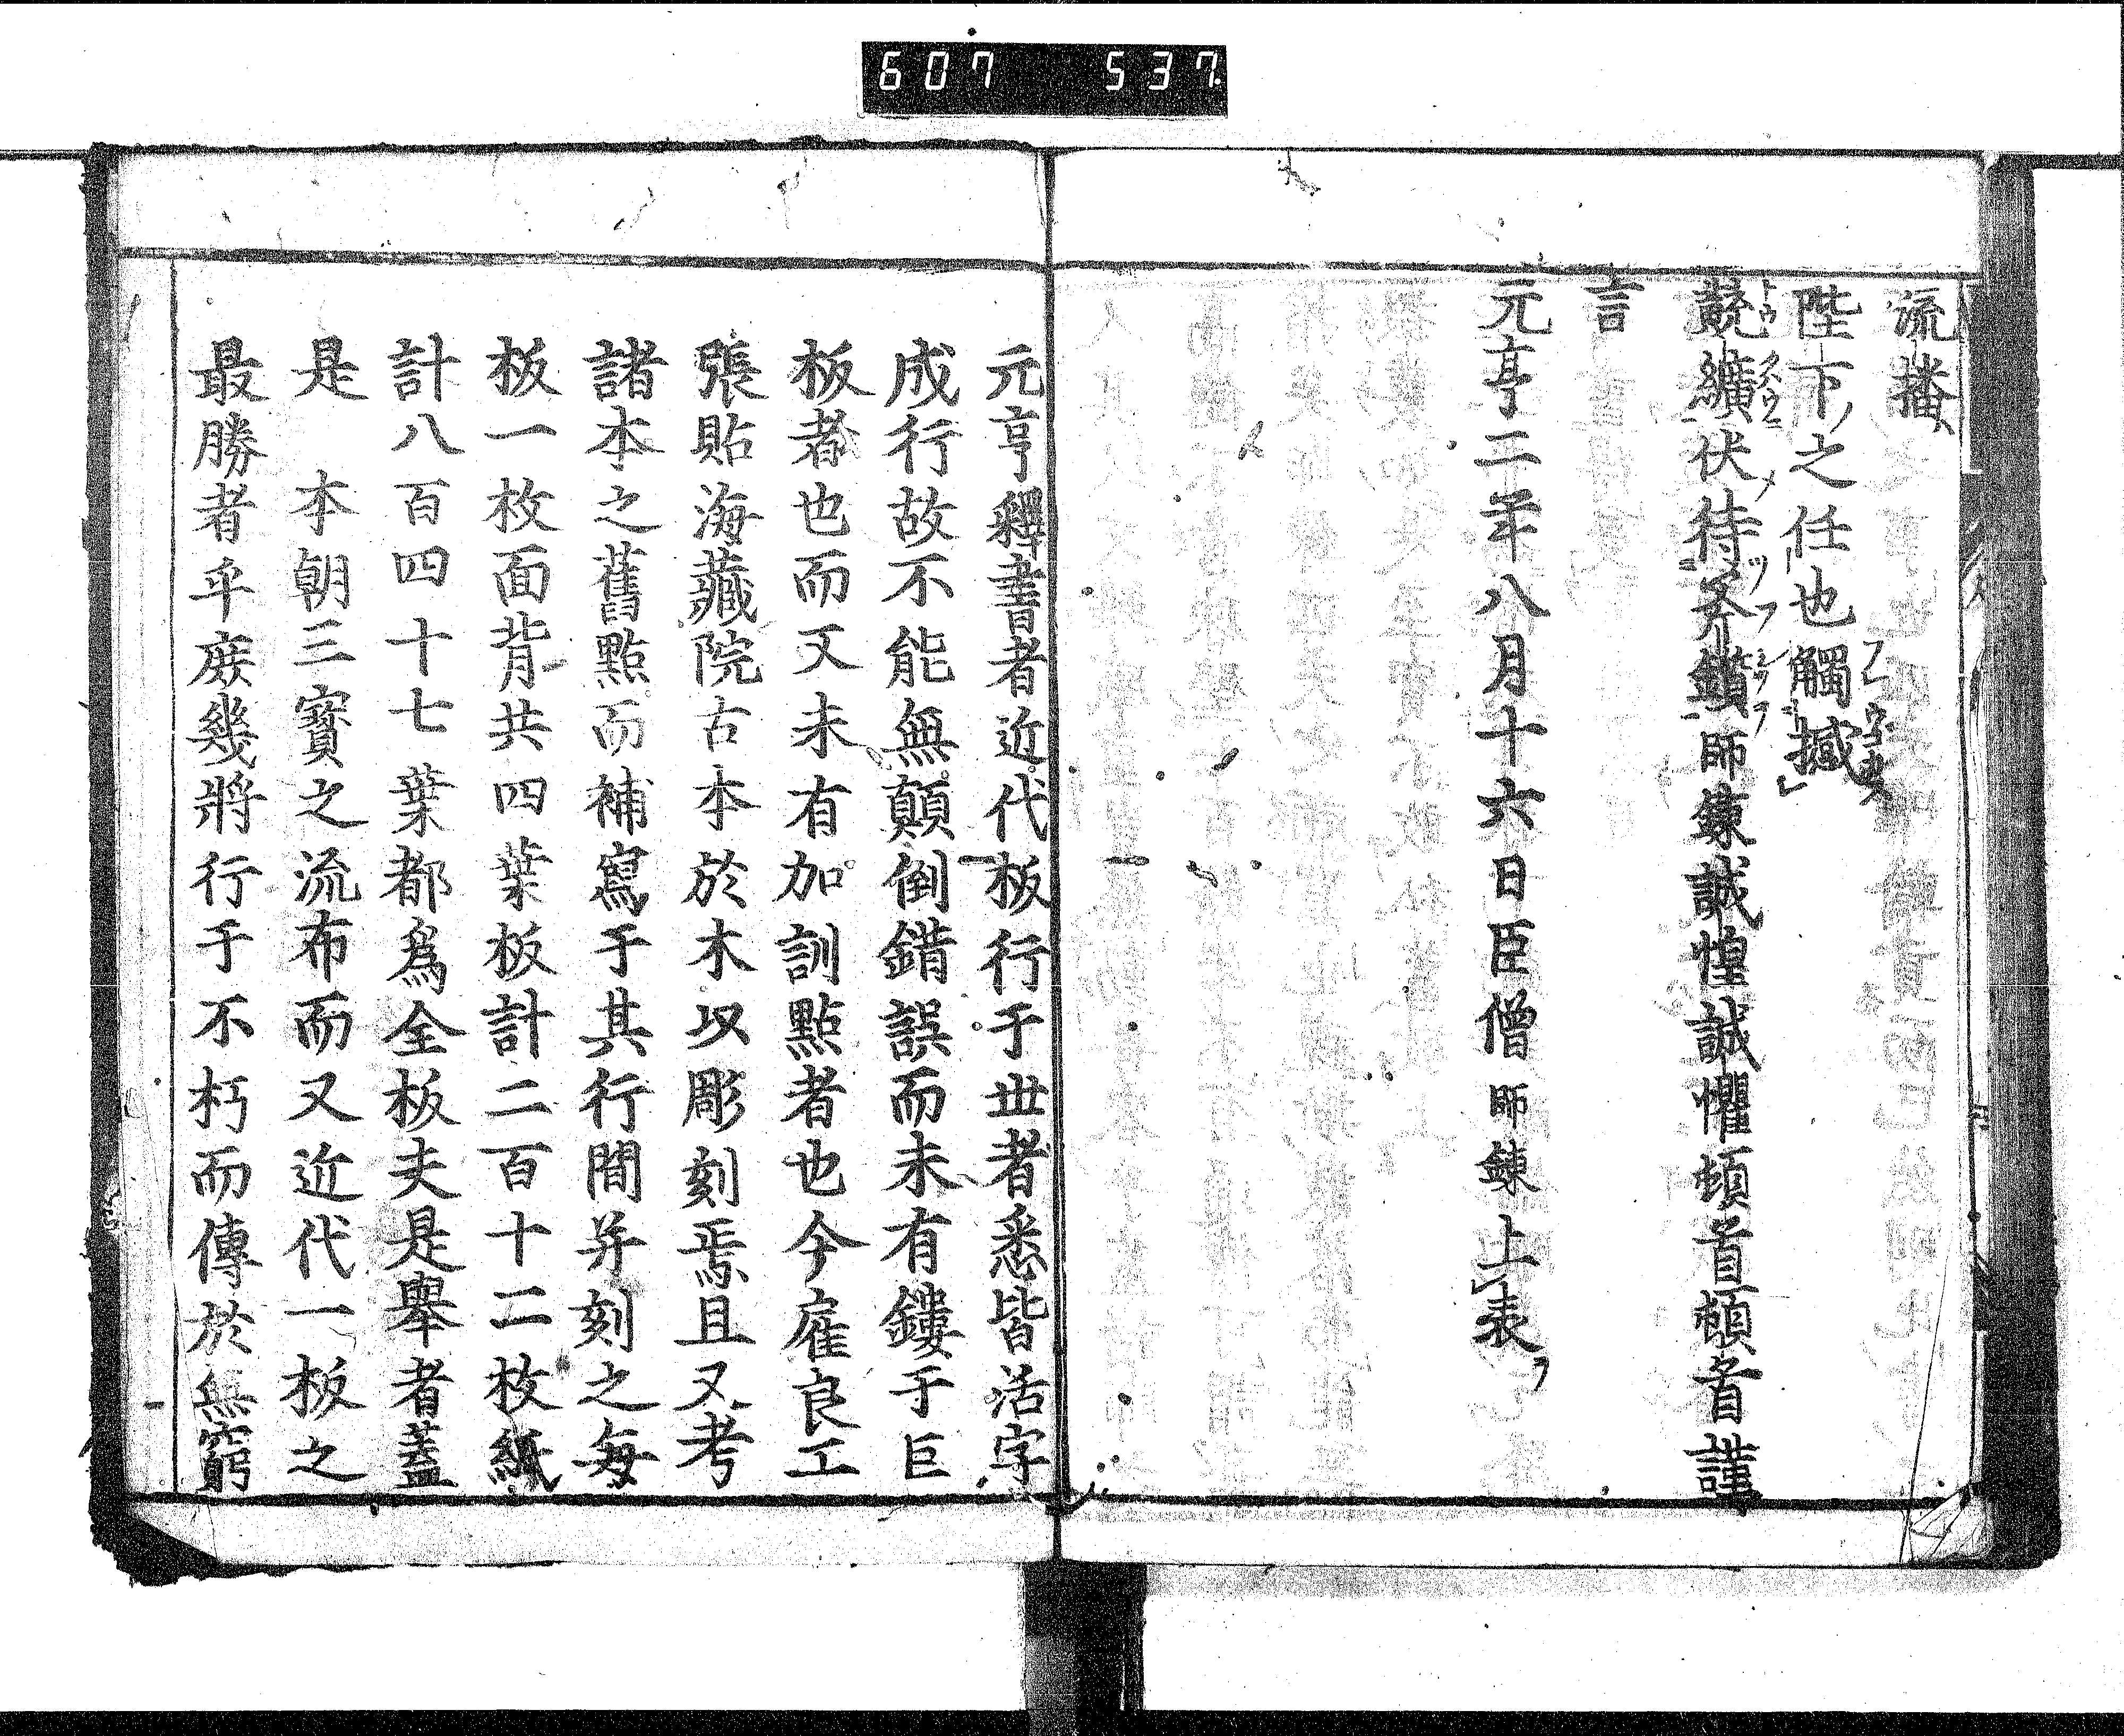 607 537
流播
陛下之任也觸撼
黈纊伏待斧鑕師錬誠惶誠懼頓首頓首謹
言
元亨二年八月十六日臣僧師錬上表
元亨釋書者近代板行于世者悉皆活字
成行故不能無顛倒錯誤而未有鏤于巨
板者也而又未有加訓點者也今雇良工
張貼海藏院古本於木以彫刻焉且又考
諸本之舊點而補寫于其行間并刻之每
板一枚面背共四葉板計二百十二枚紙
計八百四十七葉都爲全板夫是舉者蓋
是　本朝三寶之流布而又近代一板之
最勝者乎庶幾將行于不朽而傳於無窮